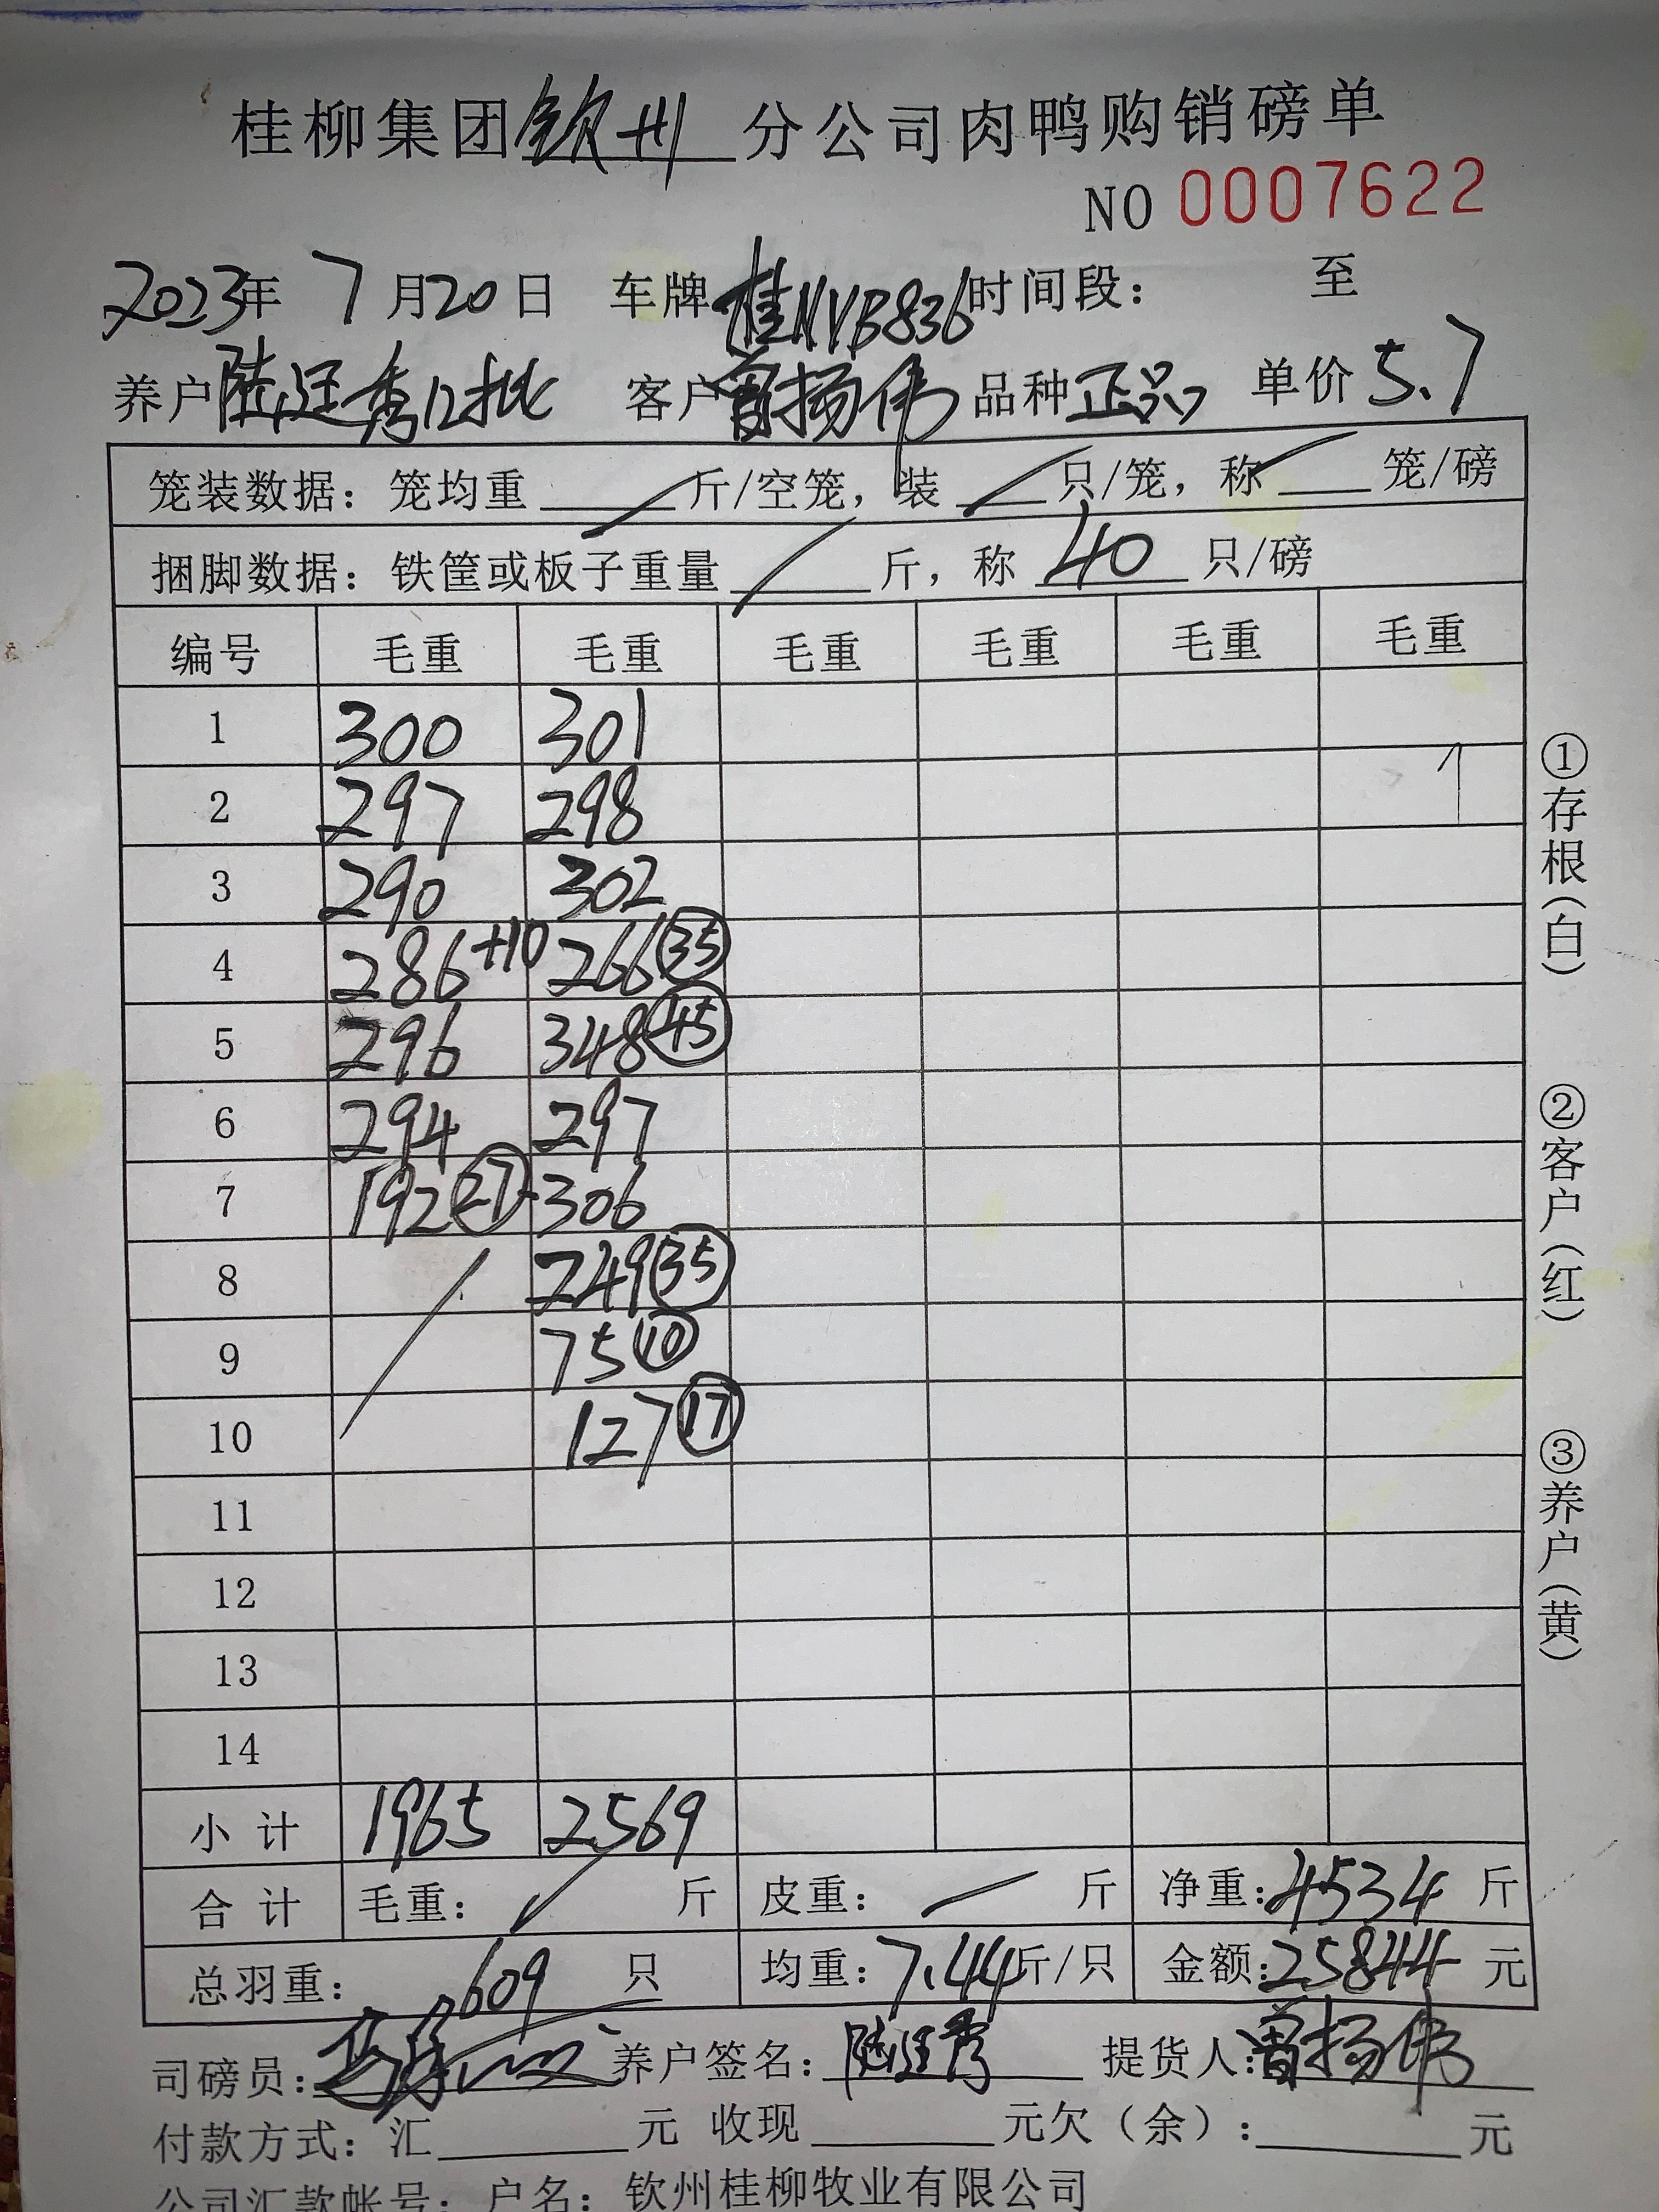 桂柳集团钦州分公司肉鸭购销磅单
NO 0007622
2023年 7月20日 车牌桂NVB836时间段： 至
养户陆廷秀12批 客户曾扬伟 品种正品 单价5.7
笼装数据：笼均重 / 斤/空笼，装 / 只/笼，称 / 笼/磅
捆脚数据：铁筐或板子重量 / 斤，称 40 只/磅
编号 毛重 毛重 毛重 毛重 毛重 毛重
1 300 301
2 297 298
3 290 302
4 286+10 266 35
5 296 348 45
6 294 297
7 192 27 306
8 249 35
9 75 10
10 127 17
11
12
13
14
小计 1965 2569
合计 毛重： 斤 皮重： 斤 净重：4534 斤
总羽重： 609 只 均重：7.44斤/只 金额：25844 元
司磅员： 养户签名：陆廷秀 提货人：曾扬伟
付款方式：汇 元 收现 元欠（余）： 元
公司汇款帐号：户名：钦州桂柳牧业有限公司
①存根（白）
②客户（红）
③养户（黄）